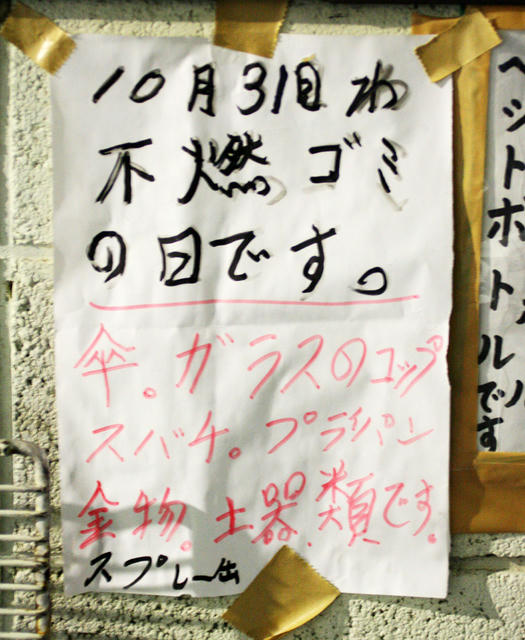 10月31日わ
不燃ゴミ
の日です。
傘。ガラスのコップ
スバチ。フライパン
金物。土器.類です。
スプレー缶
ペットボトル
トルです